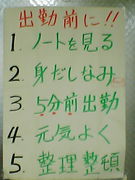 出勤前に!!
1. ノートを見る
2. 身だしなみ
3. 5分前出勤
4. 元気よく
5. 整理整頓